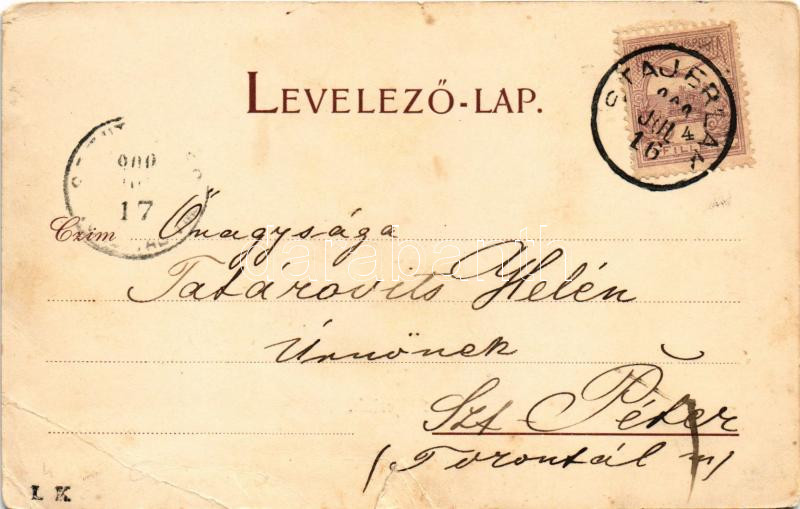 LEVELEZŐ-LAP.
STÁJERLAK
900
JUL
16
4
FILL
900
17
Czim Őnagysága
Tatárovits Helén
Úrnőnek
Szt Péter
(Torontál m)
L K.
darabanth